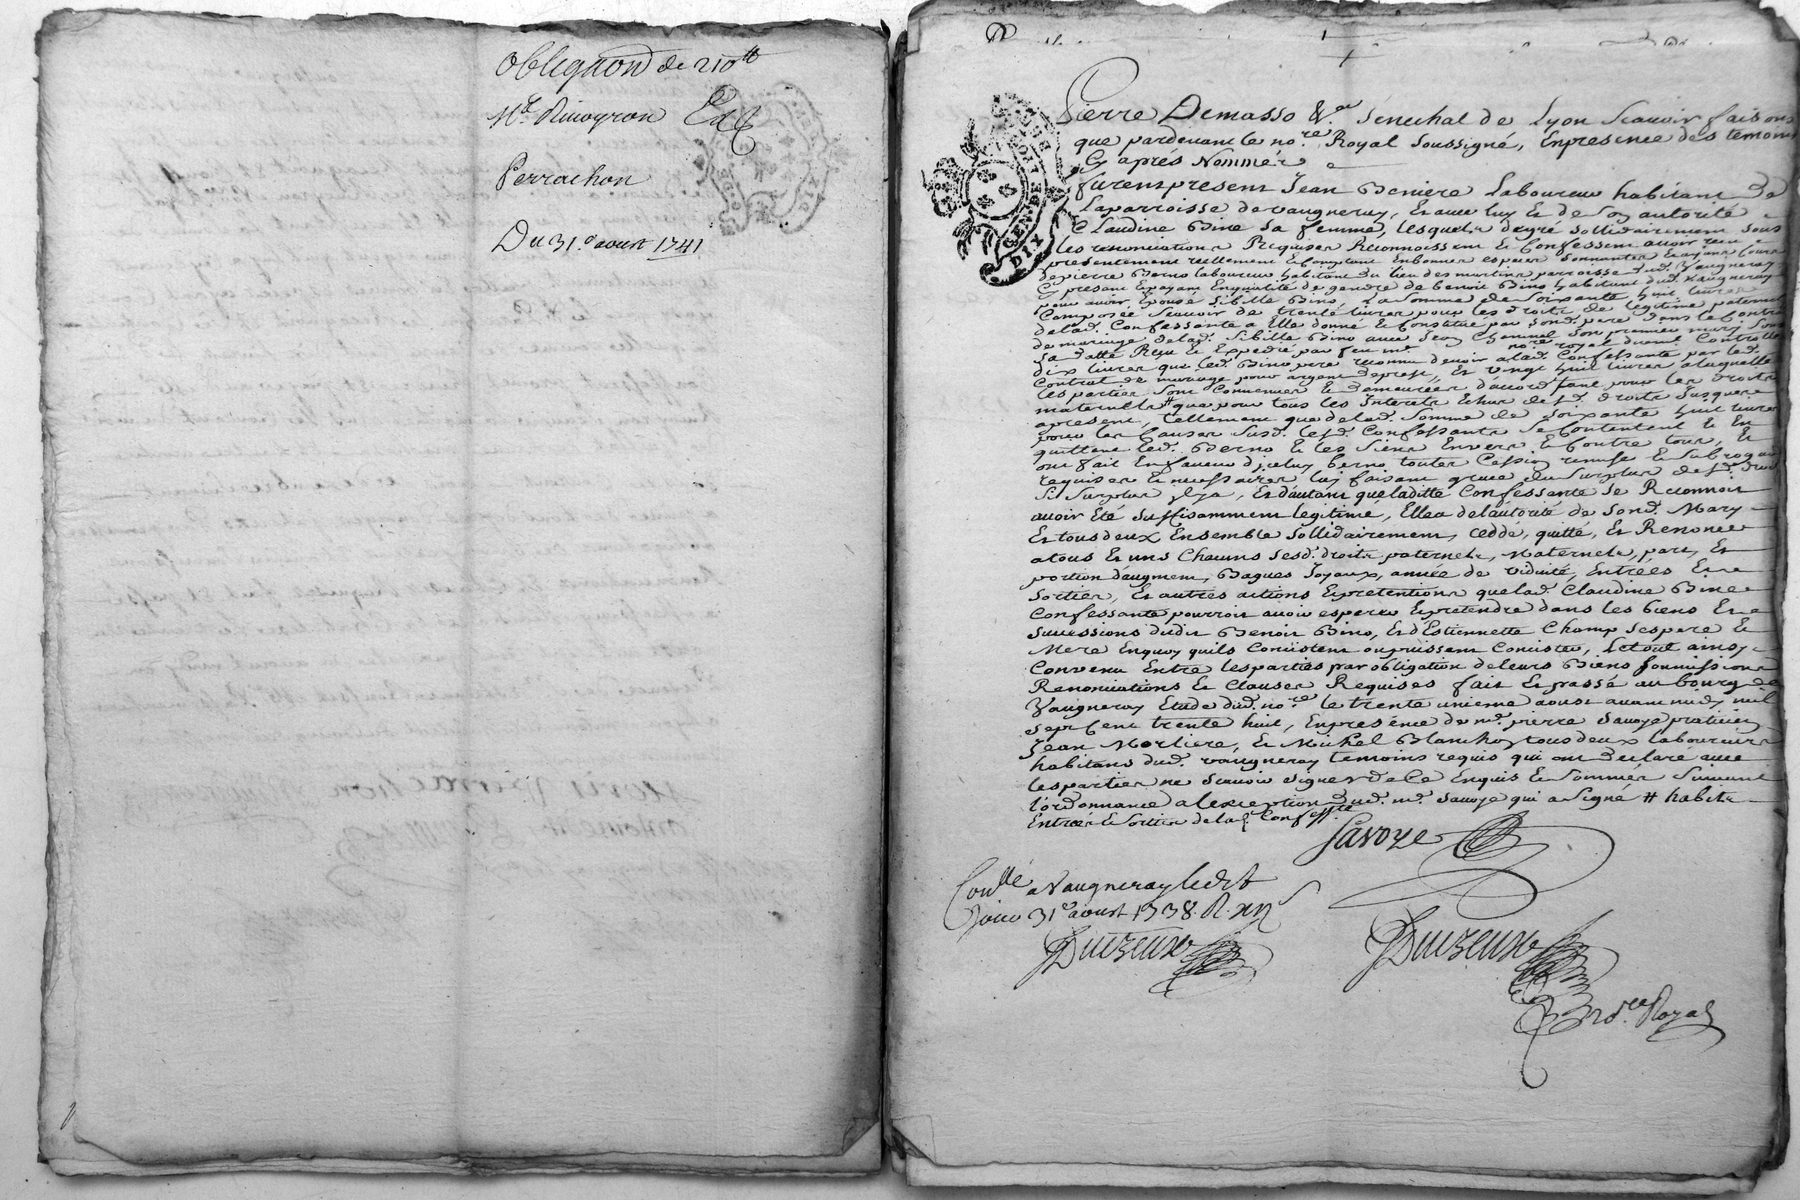 Obligaõn de 210tt
Mr. Rivoyron Ext
Perrachon
Du 31e. aoust 1741
Pierre Demasso &r. Senechal de Lyon Scavoir faisons
que pardevant le nore. Royal Soussigné, En presence des temoins
Cy aprés Nommer
furent present Jean Beniere Laboureur habitant De
Laparroisse de vaugneray, Et avec luy Et de Son autorité
Claudine Bine Sa femme, lesquels degré Sollidairement Sous
les renonciations Requises Reconnoissent Et Confessent avoir receu
presentement reellement Et Comptant En bonnes especes Sonnantes
de pierre Berno laboureur habitant du lieu des martins parroisse dud. Vaugneray
Cy present Et payant En qualité de gendre de benoit Bino habitant dud. Vaugneray
pour avoir Epousé Sibille Bino, La Somme de Soixante huit livres
Composée Scavoir de trente livres pour les droits de legitime paternel
de lad. Confessante a Elle donné Et Constitué par Sond. pere dans le Contrat
de mariage de lad. Sibille Bino avec Jean Son premier mary Sous
Sa datte Reçu Et Expedié par feu me. nore. royal duement Controllé
dix livres que led. Bino pere reconnu devoir a lad. Confessante par led.
Contrat de mariage pour argent Et vingt huit livres a laquelle
les parties Sont Convenues Et demeurées d'accord pour les droits
maternels # que pour tous les Interets Echus desd. droits Jusques
apresent, tellement que de lad. Somme de Soixante huit livres
pour les Causes Susd. lesd. Confessants Se Contentent Et En
quittent led. Berno Et les Siens Envers Et Contre tous, Et
ont fait En faveur dicelluy Berno toutes Cession remise Et Subrogation
requises Et necessaires luy faisant grace du Surplus desd. droits
Si Surplus ylya, Et d'autant que laditte Confessante Se Reconnoit
avoir Eté Suffisamment legitime, Elle a de lautorité de Sond. Mary
Et tous deux Ensemble Sollidairement, Ceddé, quitté, Et Renoncé
a tous Et uns Chacuns Sesd. droits paternels, Maternels, part, Et
portion d'augment, Bagues Joyaux, année de viduité, Entrées Et
Sorties, Et autres actions Et pretentions que lad. Claudine Bine
Confessante pourroit avoir esperer Et pretendre dans les biens Et
Successions dudit Benoit Bino, Et d'Estiennette Champ Ses pere Et
Mere En quoy quils Consistent ou puissent Consister, Le tout ainsy
Convenu Entre les parties par obligation de leurs Biens Soumissions
Renonciations Et Clauses Requises fait Et passé au bourg de
Vaugneray Etude dud. nore. le trente unieme aoust avant midy mil
Sept Cent trente huit, En presence de me. pierre Savoye praticien
Jean Morliere, Et Michel Blanchoy tous deux laboureurs
habitans dud. vaugneray temoins requis qui ont declaré avec
les parties ne Scavoir Signer de Ce Enquis Et Sommés Suivant
l'ordonnance a lexception dud. me. Savoye qui a Signé # habits
Entrées Et Sorties de lad. Confessante
Savoye
Conllé a Vaugneray ledit
Jour 31e aoust 1738. R. xij s
Duizeux
Duizeux
nore. Royal
GEN. DE LYON
DIX D